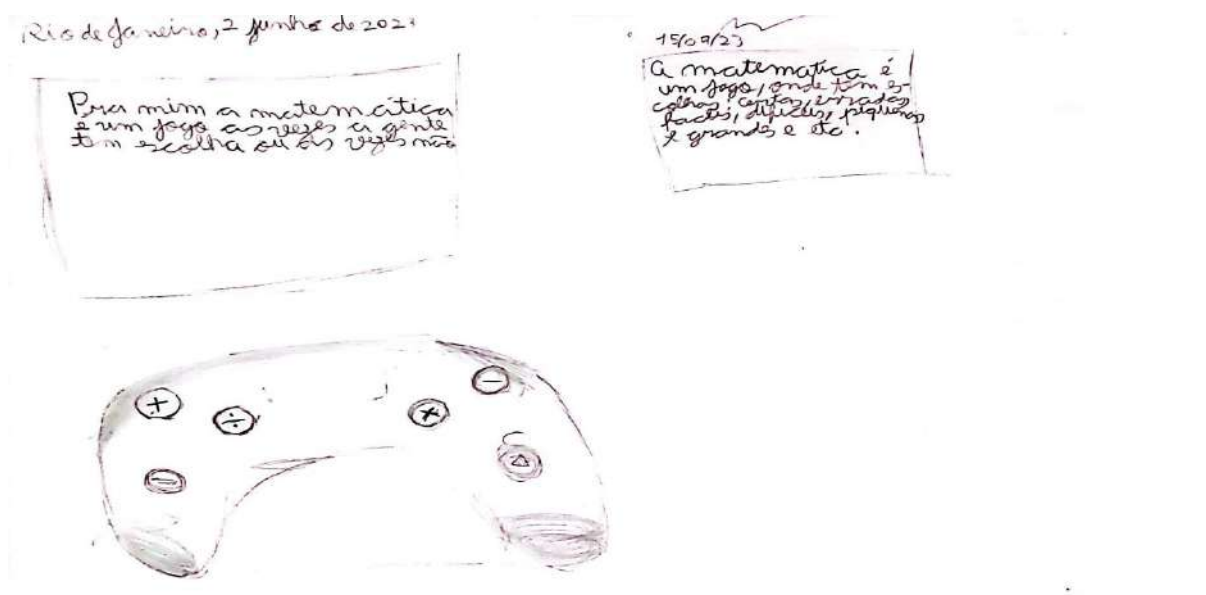 Rio de Janeiro, 2 junho de 2023
Pra mim a matemática
é um jogo as vezes a gente
tem escolha ou as vezes não
15/09/23
a matematica é
um jogo, onde tem es-
colhas, certas, erradas
faceis, dificeis, piquenas
e grandes e etc.
+
÷
×
−
=
△